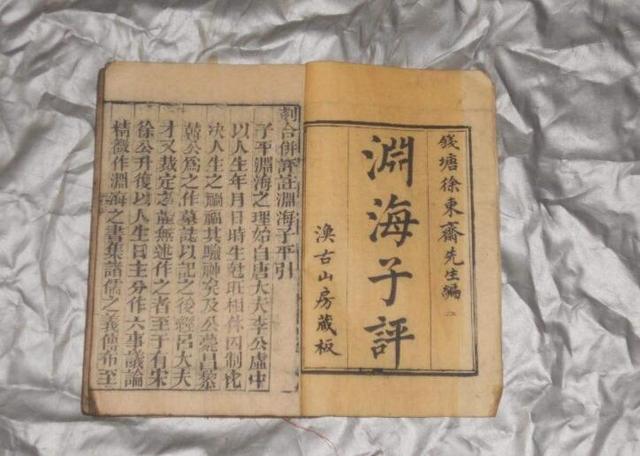 錢塘徐東齋先生編
淵海子評
漁古山房藏板
刻合併評註淵海子平引
子平淵海之理始自唐大夫李公虛中
以人生年月日時生尅旺相休囚制化
決人生之禍福其驗神矣及公薨昌黎
韓公為之作墓誌以記之後經呂大夫
才又裁定之並無述作之者至于有宋
徐公升復以人生日主分作六事議論
精微作淵海之書集諸儒之義傳布至